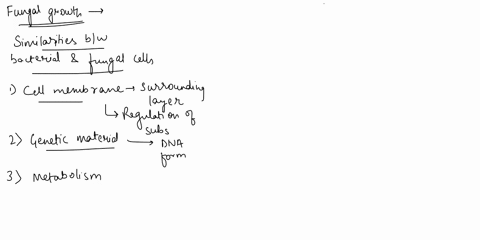 Fungal growth →
Similarities b/w
bacterial & fungal cells
1) Cell membrane → Surrounding
layer
↳ Regulation of
subs
2) Genetic material → DNA
form
3) Metabolism